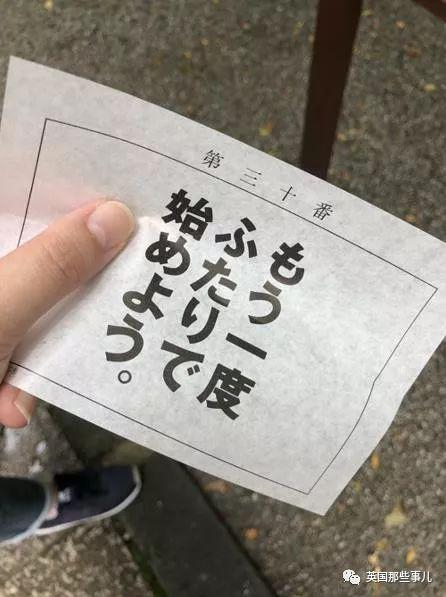 第三十番
もう一度
ふたりで
始めよう。
英国那些事儿